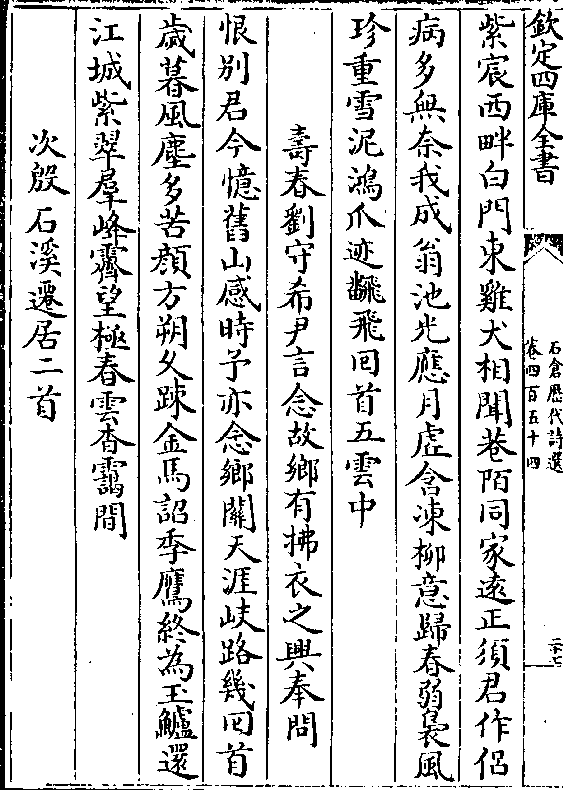 欽定四庫全書
石倉歷代詩選
卷四百五十四
二十七
紫宸西畔白門東雞犬相聞巷陌同家遠正須君作侣
病多無奈我成翁池光應月虚含凍柳意歸春弱裊風
珍重雪泥鴻爪迹飜飛囘首五雲中
壽春劉守希尹言念故鄉有拂衣之興奉問
恨别君今憶舊山感時予亦念鄉關天涯岐路幾囘首
歲暮風塵多苦顔方朔久踈金馬詔季鷹終為玉鱸還
江城紫翠羣峰霽望極春雲杳靄間
次殷石溪遷居二首